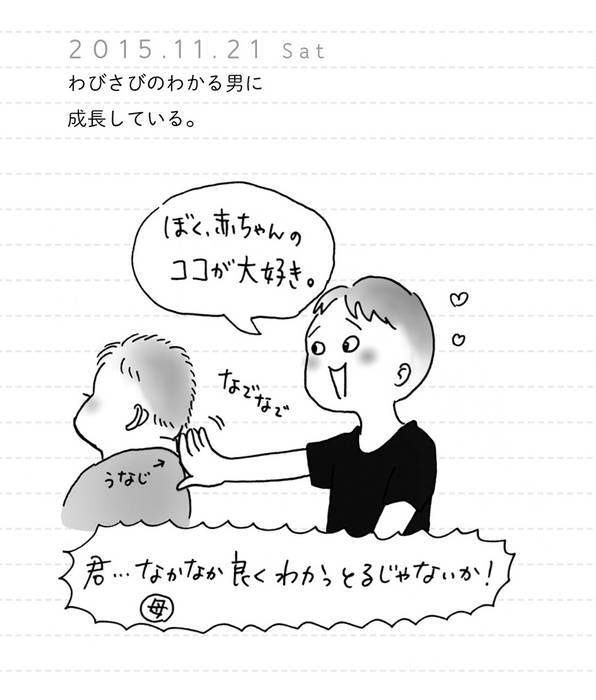 2015.11.21 Sat
わびさびのわかる男に
成長している。
ぼく、赤ちゃんの
ココが大好き。
なでなで
うなじ
君…なかなか良くわかっとるじゃないか!
母